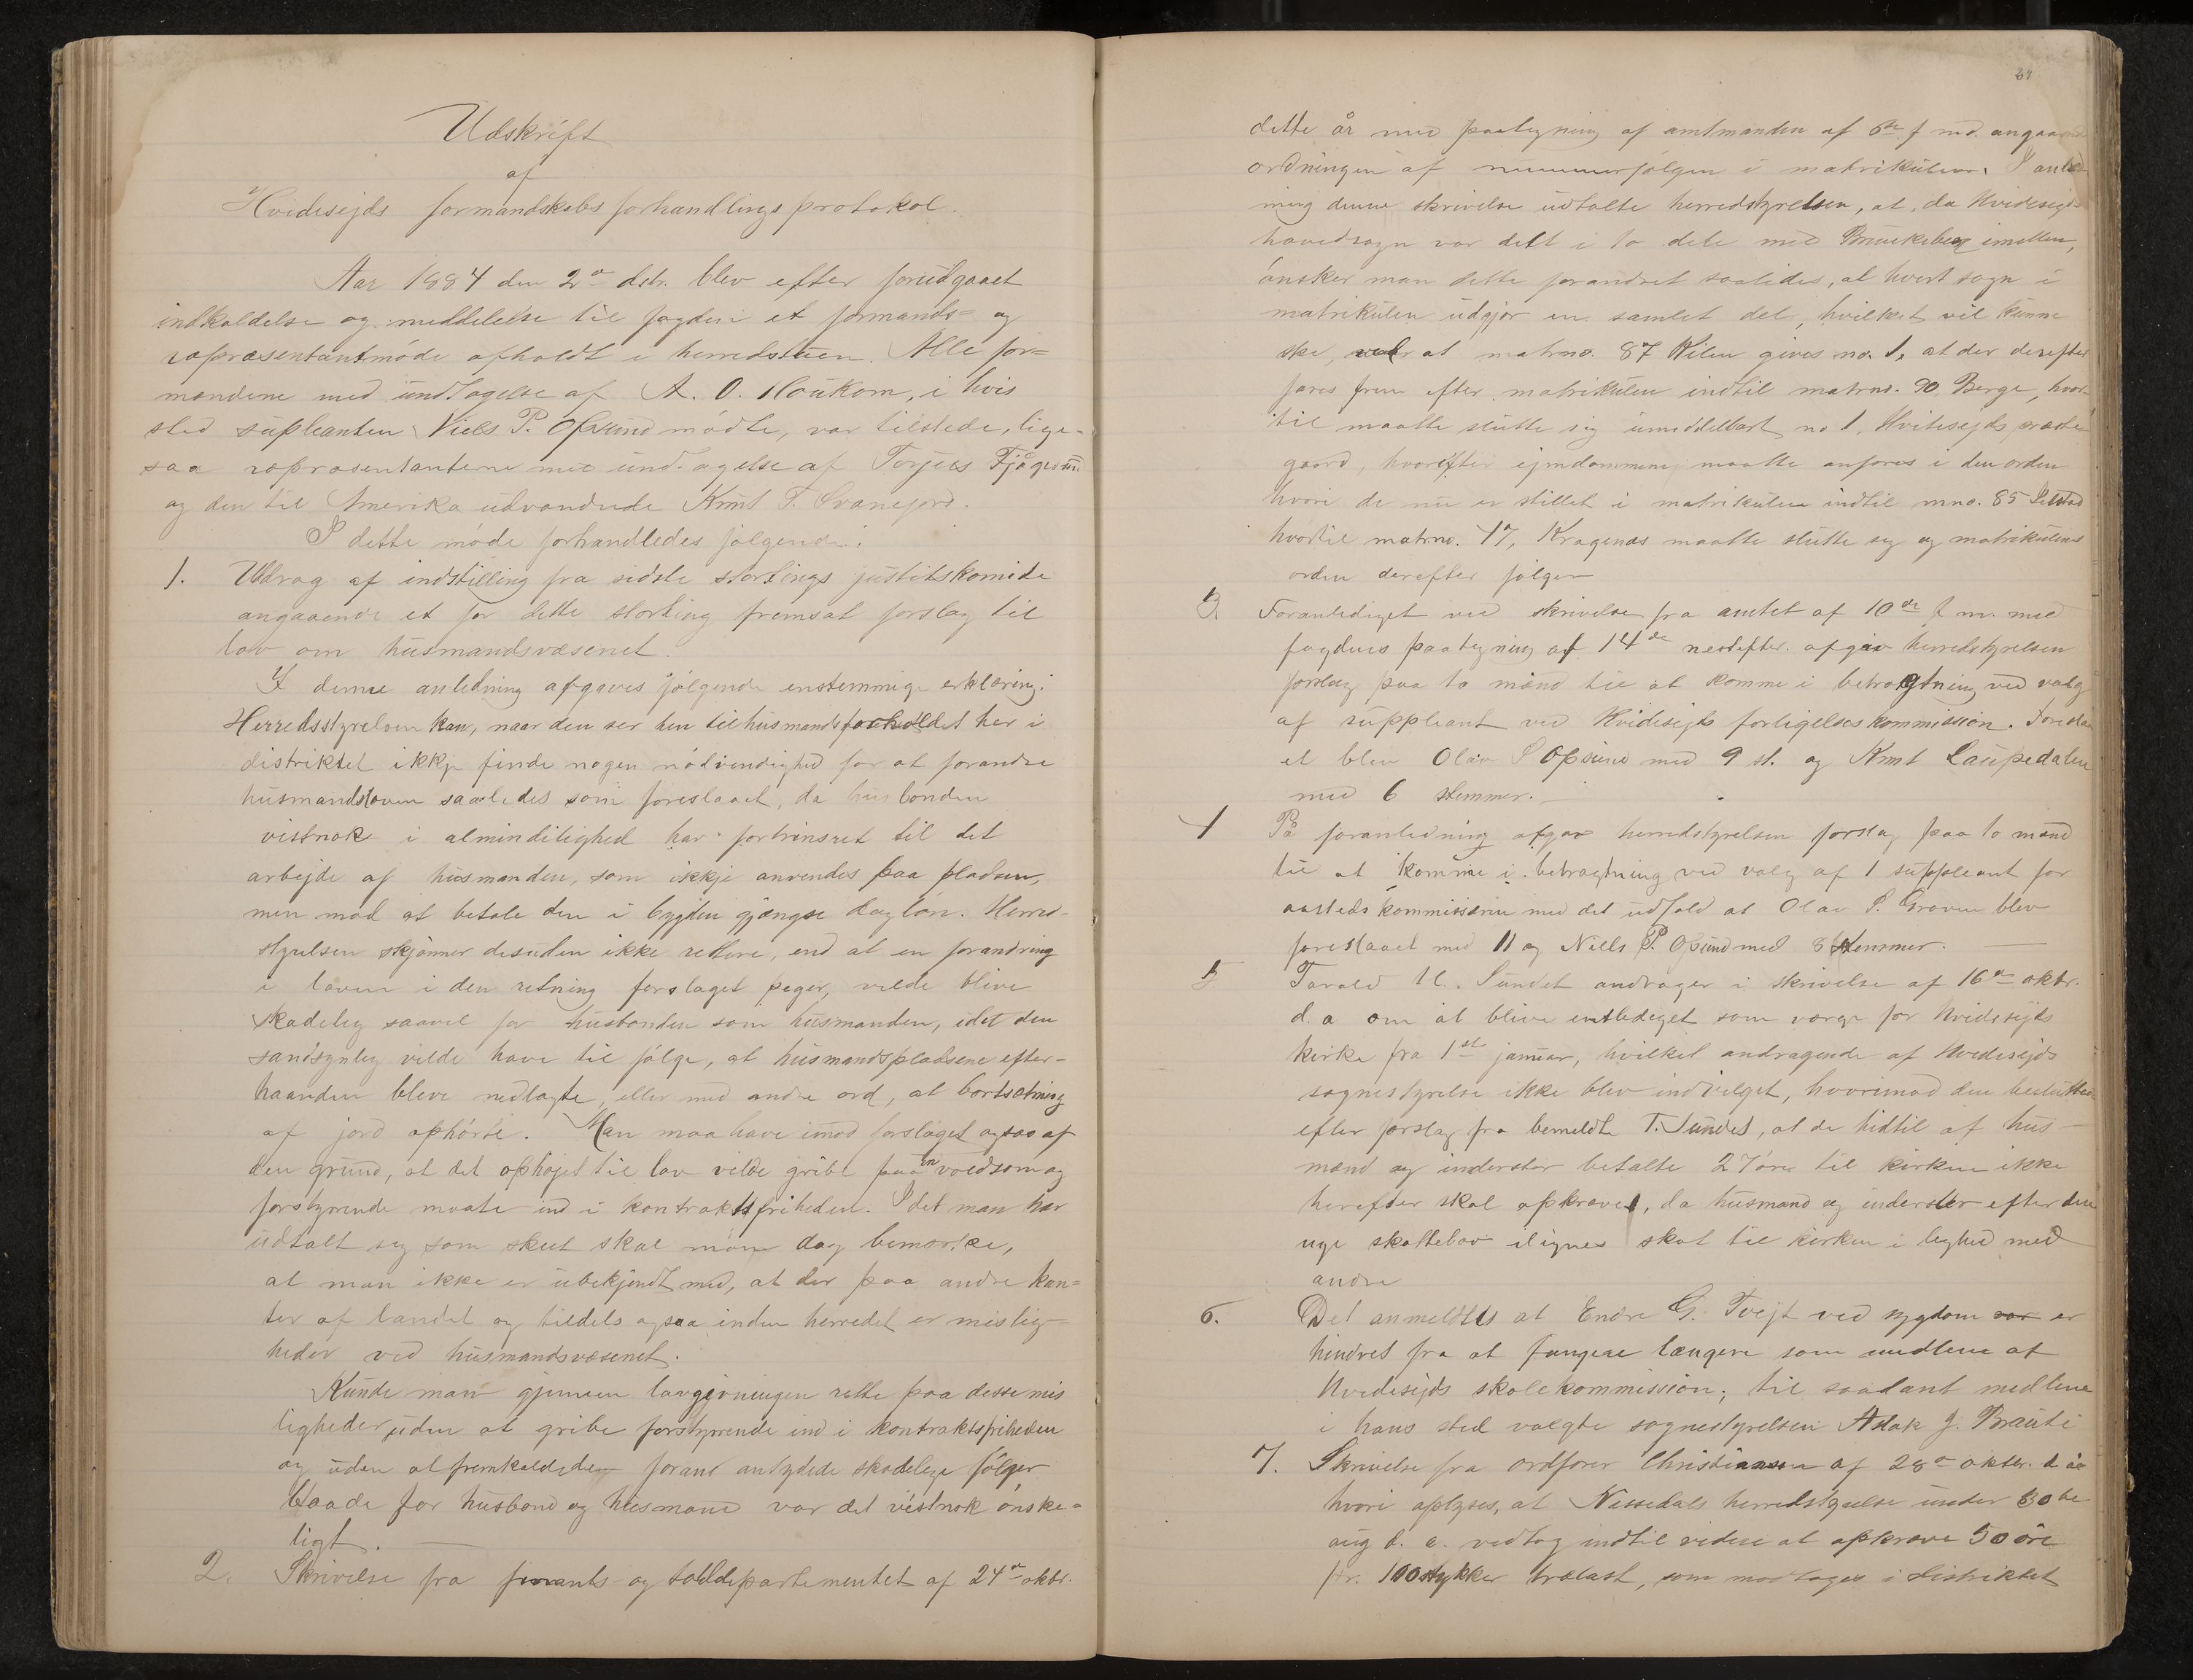 Udskrift
af
Hvidesejds formandskabs forhandlingsprotokol.
Aar 1884 den 2den dcbr. blev efter forudgaaet
indkaldelse og meddelelse til fogden et formands- og
repræsentantmøde afholdt i herredstuen. Alle for=
mændene med undtagelse af A. O. Houkom, i hvis
sted supleanten Niels P. Opsund mødte, var tilstede, lige-
saa repræsentanterne med undtagelse af Torjus Fjågesund
og den til Amerika udvandrede Knut T. Svanejord.
I dette møde forhandledes følgende:
1. Uddrag af indstilling fra sidste stortings justitskomite
angaaende et for dette storting fremsat forslag til
lov om husmandsvæsenet.
I denne anledning afgaves følgende enstemmige erklæring:
Herredsstyrelsen kan, naar den ser hen til husmandsforholdet her i
distriktet ikkje finde nogen nødvendighed for at forandre
husmandsloven saaledes som foreslaaet, da husbonden
vistnok i almindelighed har fortrinsret til det
arbejde af husmanden, som ikkje anvendes paa pladsen,
men mod at betale den i bygden gjængse dagløn. Herred-
styrelsen skjønner desuden ikke rettere, end at en forandring
i loven i den retning forslaget peger, vilde blive
skadelig saavel for husbonden som husmanden, idet den
sandsynlig vilde have til følge, at husmandspladsene efter-
haanden bleve nedlagte, eller med andre ord, at bortsætning
af jord ophørte. Man maa have imod forslaget ogsaa af
den grund, at det ophøjet til lov vilde gribe paa en voldsom og
forstyrrende maate ind i kontraktsfriheden. Idet man har
udtalt sig som skeet skal man dog bemærke,
at man ikke er ubekjendt med, at der paa andre kan=
ter af landet og tildels ogsaa inden herredet er mislig=
heder ved husmandsvæsenet.
Kunde man gjennem lovgivningen rette paa desse mis
ligheder uden at gribe forstyrrende ind i kontraktsfriheden
og uden at fremkalde de foran antydede skadelige følger
baade for husbond og husmand var det vistnok ønske=
ligt.
2. Skrivelse fra finants- og tolddepartementet af 24de oktbr.
dette år med paategning af amtmanden af 6te f. md. angaaende
ordningen af nummerfølgen i matrikulen. I anled
ning denne skrivelse udtalte herredstyrelsen, at, da Hvidesejds
hovedsogn var delt i to dele med Brunkeberg imellem,
ønsker man dette forandret saaledes, at hvert sogn i
matrikulen udgjør en samlet del, hvilket vil kunne
ske, ved at matrno. 87 Kilen gives no. 1, at der derefter
føres frem efter matrikulen indtil matrno. 90 Berge, hvor
til maatte slutte sig umiddelbart no 1, Hvitesejds præste
gaard, hvorefter ejendommene maatte anføres i den orden
hvori de nu er stillet i matrikulen indtil mno. 85
hvortil matrno. 47, Kragenæs maatte slutte sig og matrikulens
orden derefter følger
3. Foranlediget ved skrivelse fra amtet af 10de f. m. med
fogdens paategning af 14de næstefter. afgav herredstyrelsen
forslag paa to mænd til at komme i betragtning ved valg
af suppleant ved Hvidesejds forligelseskommission. Foreslaa
et blev Olav S Opsund med 9 st. og Knut Laupedalen
med 6 stemmer.
4 På foranledning afgav herredstyrelsen forslag paa to mænd
til at komme i betragtning ved valg af 1 suppleant for
aastedskommissærin med det udfald at Olav S. Groven blev
foreslaaet med 11 og Niells P. Opsund med 8 stemmer.
5 Tarald H. Sundet andrager i skrivelse af 16de oktbr.
d. a om at blive entlediget som værge for Hvidesejds
kirke fra 1ste januar, hvilket andragende af Hvidesejds
sognestyrelse ikke blev indvilget, hvorimod den besluttede
efter forslag fra bemeldte T. Sundet, at de hidtil af hus-
mænd og inderster betalte 27 øre til kirken ikke
herefter skal opkræves, da husmænd og inderster efter den
nye skattelov ilignes skat til kirken i lighed med
andre
6. Det anmeldtes at Endre G. Tvejt ved sygdom er
hindret fra at fungere længere som medlem af
Hvidesejds skolekommission; til saadant medlem
i hans sted valgte sognestyrelsen Aslak J. Brauti
7. Skrivelse fra ordfører Christiansen af 28de oktbr. d. år
hvori oplyses, at Nissedals herredstyrelse under 30te
aug d. a. vedtog indtil videre at opkræve 50 øre
pr. 100 stykker trælast, som modtages i distriktet